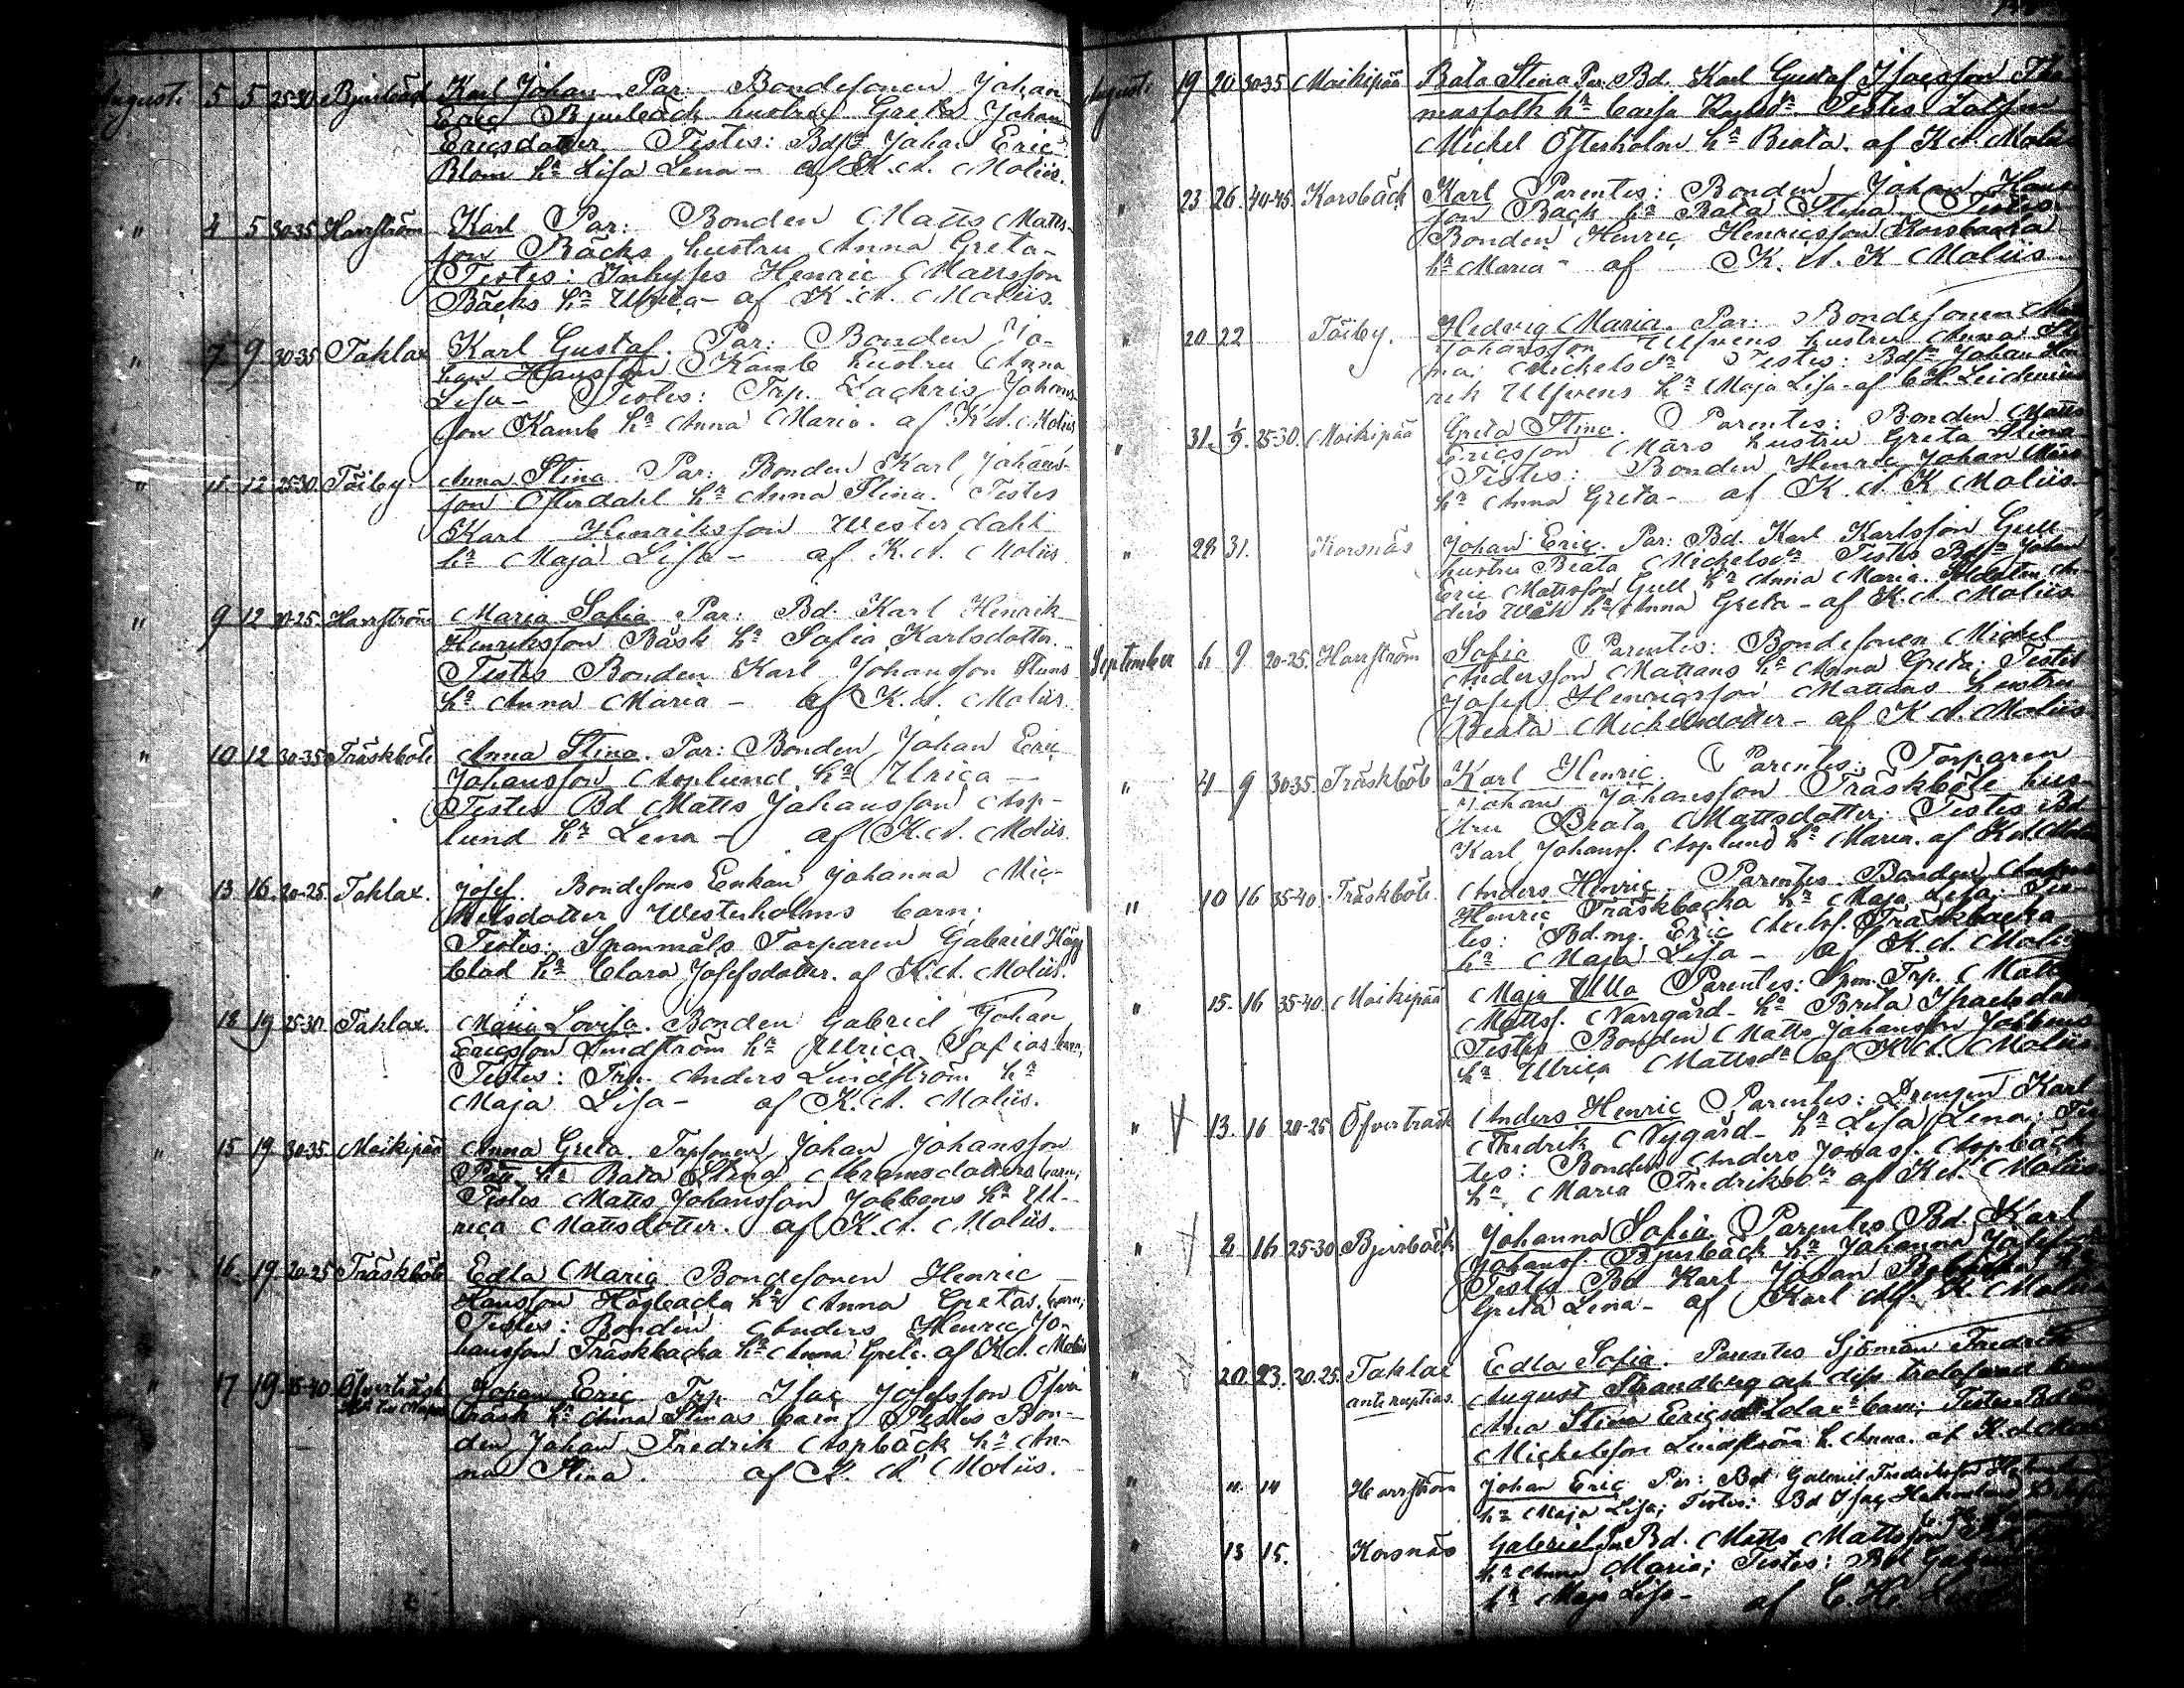 Augusti 5 5 25-30 Bjurbäck Karl Johan Par: Bondesonen Johan
Eric Bjurbäck hustru Greta Johan
Ericsdotter. Testes: Bdsn Johan Eric
Blom hn Lisa Lena - af K. A. Moliis.
" 4 5 30-35 Harrström Karl Par: Bonden Matts Matts-
son Bäcks hustru Anna Greta-
Testes: Inhyses Henric Mattsson
Bäcks hn Ulrica - af K. A. Moliis.
" 7 9 30-35 Taklax Karl Gustaf. Par: Bonden Jo-
han Hansson Kamb hustru Anna
Lisa - Testes: Trp. Zachris Johans-
son Kamb hn Anna Maria. af K. A. Moliis
" 11 12 25-30 Töjby Anna Stina Par: Bonden Karl Johans-
son Österdahl hn Anna Stina. Testes
Karl Henriksson Westerdahl
hn Maja Lisa - af K. A. Moliis
" 9 12 20-25 Harrström Maria Sofia Par: Bd. Karl Henrik
Henriksson Bäsk hn Sofia Karlsdotter.
Testes Bonden Karl Johansson
hn Anna Maria - af K. A. Moliis.
" 10 12 30-35 Träskböle Anna Stina. Par: Bonden Johan Eric
Johansson Asplund hn Ulrica -
Testes Bd Matts Johansson Asp-
lund hn Lena - af K. A. Moliis.
" 13 16 20-25 Taklax. Josef. Bondesons Enkan Johanna Mic-
helsdotter Westerholms barn;
Testes: Spanmåls Torparen Gabriel Hägg
blad hn Clara Josefsdotter. af K. A. Moliis.
" 18 19 25-30 Taklax. Maria Lovisa. Bonden Gabriel Johan
Ericsson Lindström hn Ulrica Sofias barn;
Testes: Trp. Anders Lindström hn
Maja Lisa - af K. A. Moliis.
" 15 19 30-35 Moikipää Anna Greta. Trpsonen Johan Johansson
hn Bata Stina Abramsdotters barn;
Testes Matts Johansson Jobbens hn Ul-
rica Mattsdotter. af K. A. Moliis.
" 16 19 20-25 Träskböle Edla Maria Bondesonen Henric
Hansson Högbacka hn Anna Gretas barn;
Testes: Bonden Anders Henric Jo-
hansson Träskbacka hn Anna Greta. af K. A. Moliis
" 17 19 35-40 Öfverträsk Johan Eric Trp. Isac Josefsson Öfver
träsk hn Anna Stinas barn; Testes Bon-
den Johan Fredrik Aspbäck hn An-
na Stina. af K. A. Moliis.
Augusti 19 20 30-35 Moikipää Bata Stina Par: Bd. Karl Gustaf Isacsson Tho
masfolk hn Cajsa Testes
Michel Österholm hn Beata. af K. A. Moliis
" 23 26 40-45 Korsbäck Karl Parentes: Bonden Johan Hans
son Bäck hn Bata Stina Testes.
Bonden Henric Henricsson Korsbäck
hn Maria - af K. A. K Moliis.
" 20 22 Töjby. Hedvig Maria. Par: Bondesonen
Johansson Ulfvens hustru Anna
Michelsdr Testes: Bdsn Johan Hen
rik Ulfvens hn Maja Lisa - af C. H. Leidenius
" 31 1/9 25-30 Moikipää Greta Stina. Parentes: Bonden Matts
Ericsson Mårs hustru Greta Stina
Testes: Bonden Henric Johan Mårs
hn Anna Greta - af K. A. K Moliis
" 28 31. Korsnäs Johan Eric. Par: Bd. Karl Karlsson Gull
hustru Beata Michelsdr Testes Bdsn Johan
Eric Mattsson Gull hn Anna Maria. Soldaten An
ders Wäk hn Anna Greta - af K. A. Moliis
September 6 9 20-25 Harrström Sofia Parentes: Bondesonen Michel
Andersson Mattans hn Anna Greta; Testes
Josef Henricsson Mattans hustru
Beata Michelsdotter - af K. A. Moliis.
" 4 9 30-35 Träskböle Karl Henric. Parentes: Torparen
Johan Johansson Träskböle hus-
tru Beata Mattsdotter; Testes Bd
Karl Johanss. Asplund hn Maria. af K. A. Moliis
" 10 16 35-40 Träskböle Anders Henric Parentes Bonden Anders
Henric Träskbacka hn Maja Lisa; Tes-
tes: Bd.mg. Eric Träskbacka
hn Maja Lisa - af K. A. Moliis
" 15 16 35-40 Moikipää Maja Ulla Parentes: Spm. Trp. Matts
Mattss. Norrgård - hn Brita Israelsdotter
Testes Bonden Matts Johansson Jobbens
hn Ulrica Mattsdr af K. A. Moliis
" 13 16 20-25 Öfverträsk Anders Henric Parentes: Drengen Karl
Fredrik Nygård - hn Lisa Lena; Tes
tes: Bonden Anders Aspbäck
hn Maria Fredriksdr af K. A. Moliis
" 2 16 25-30 Bjurbäck Johanna Sofia. Parentes Bd. Karl
Johanss. Bjurbäck hn Johanna
Testes Bd Karl Johan
Greta Lena - af Karl Moliis
" 20 23 20-25 Taklax Edla Sofia. Parentes Sjöman Fredrik
ante nuptias. August Strandberg och dess trolofvade
Ana Stina Ericsdr barn; Testes Bd
Michelsson Lindström h. Anna. af K. A. Moliis
" 11 14 Harrström Johan Eric Par: Bd Gabriel Fredriksson
hn Maja Lisa; Testes: Bd Isac
" 13 15. Korsnäs Gabriel Par Bd. Matts Mattsson
hn Anna Maria; Testes: Bd
hn Maja Lisa - af C. H.